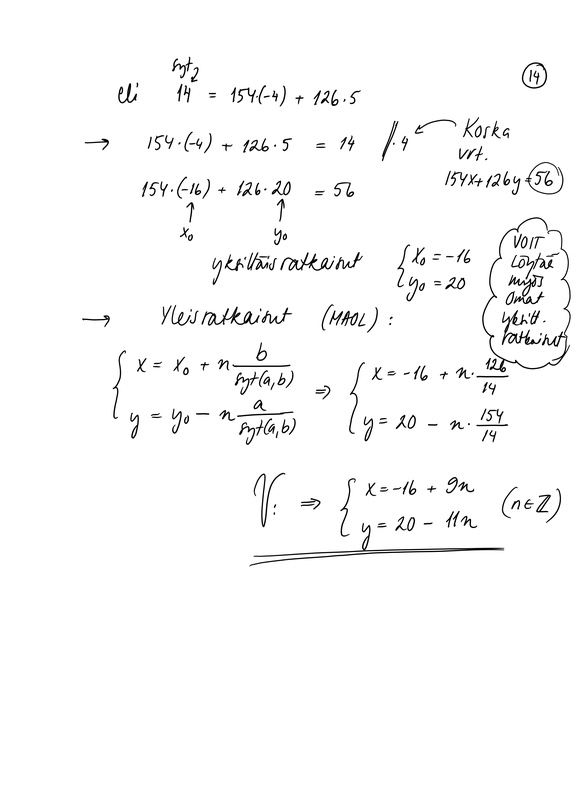 14
syt
eli 14 = 154·(-4) + 126·5
→ 154·(-4) + 126·5 = 14 ‖·4 ← Koska
vrt.
154x+126y=56
154·(-16) + 126·20 = 56
↑ ↑
x₀ y₀
yksittäisratkaisut { x₀ = -16
y₀ = 20
VOIT
löytää
myös
omat
yksitt.
ratkaisut
→ Yleisratkaisut (MAOL) :
{ x = x₀ + n b/syt(a,b) ⇒ { x = -16 + n·126/14
y = y₀ - n a/syt(a,b) y = 20 - n·154/14
V: ⇒ { x = -16 + 9n (n∈ℤ)
y = 20 - 11n